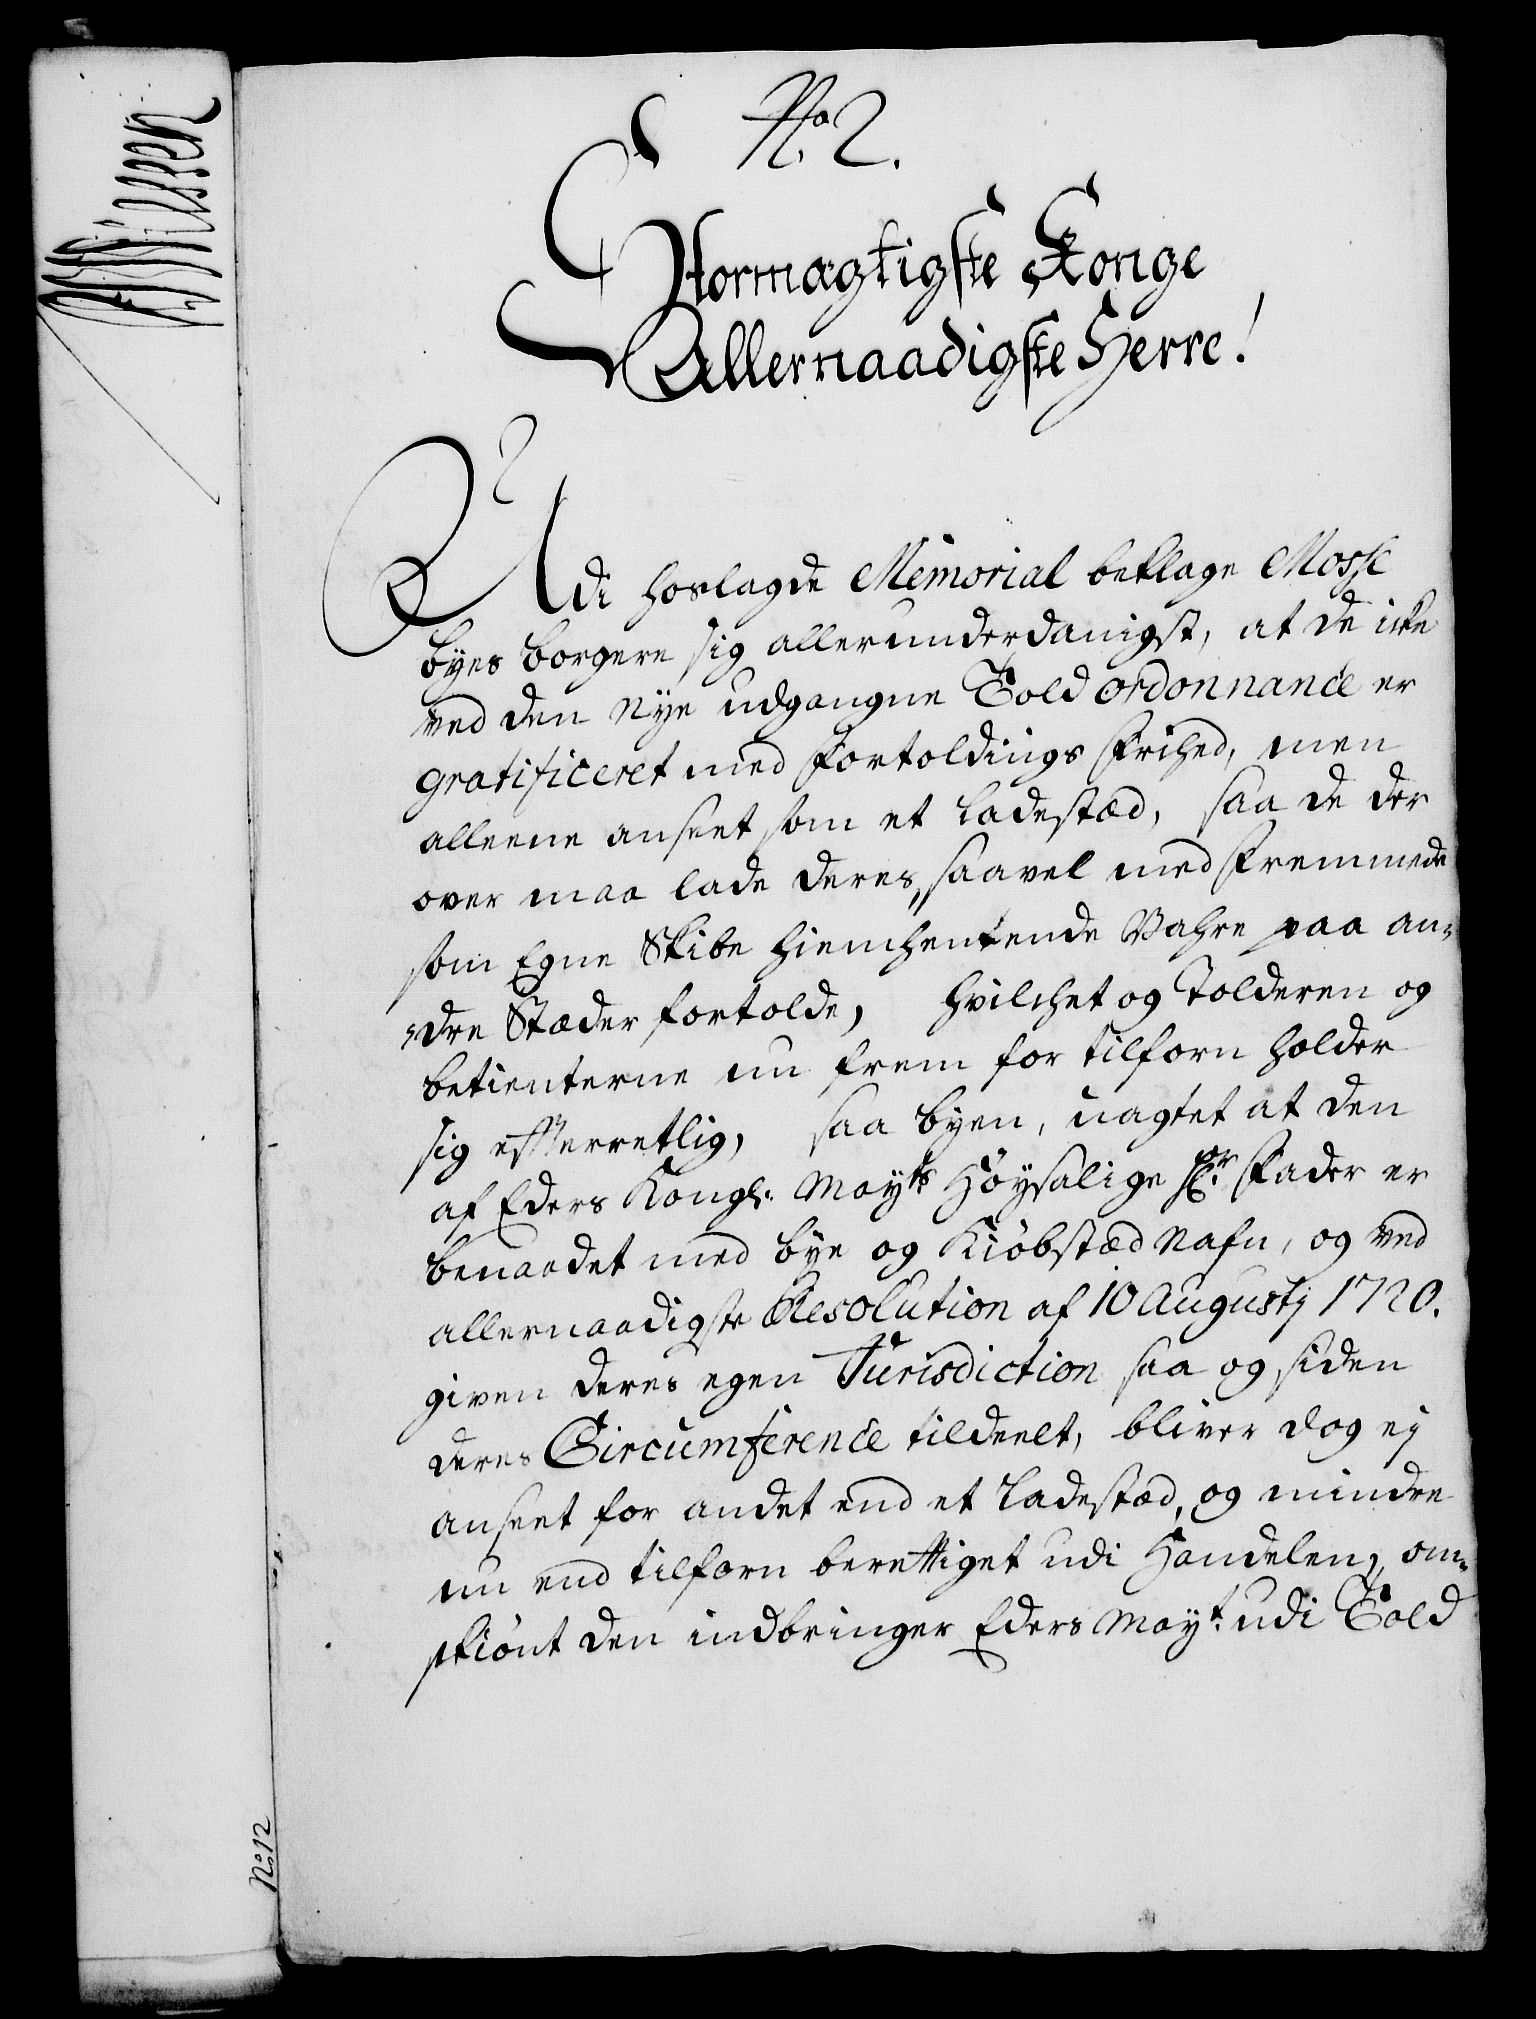 No 2.
Stormægtigste Konge
Allernaadigste Herre!
Udi hoslagde Memorial beklage Mosse
byes borgere sig allerunderdanigst, at de icke
ved den nye udgangne Told ordonnance er
gratificeret med Fortoldings Frihed, men
alleene anseet som et Ladestæd, saa de der
over maa lade deres, saavel med Fremmede
som Egne Skibe hiemhentende Vahre paa an-
-dre Stæder fortolde, hvilchet og Tolderen og
betienterne nu frem for tilforn holder
sig efterretlig, saa byen, uagtet at den
af Eders Kongl. Mayts Høysalige Hr. Fader er
benaadet med bye og Kiøbstæd Nafn, og ved
allernaadigste Resolution af 10 Augustj 1720.
given deres egen Jurisdiction saa og siden
deres Circumference tildeelt, bliver dog ej
anseet for andet end et Ladestæd, og mindre
nu end tilforn berettiget udi Handelen, om-
skiønt den indbringer Eders Mayt. udi Told
No: 12